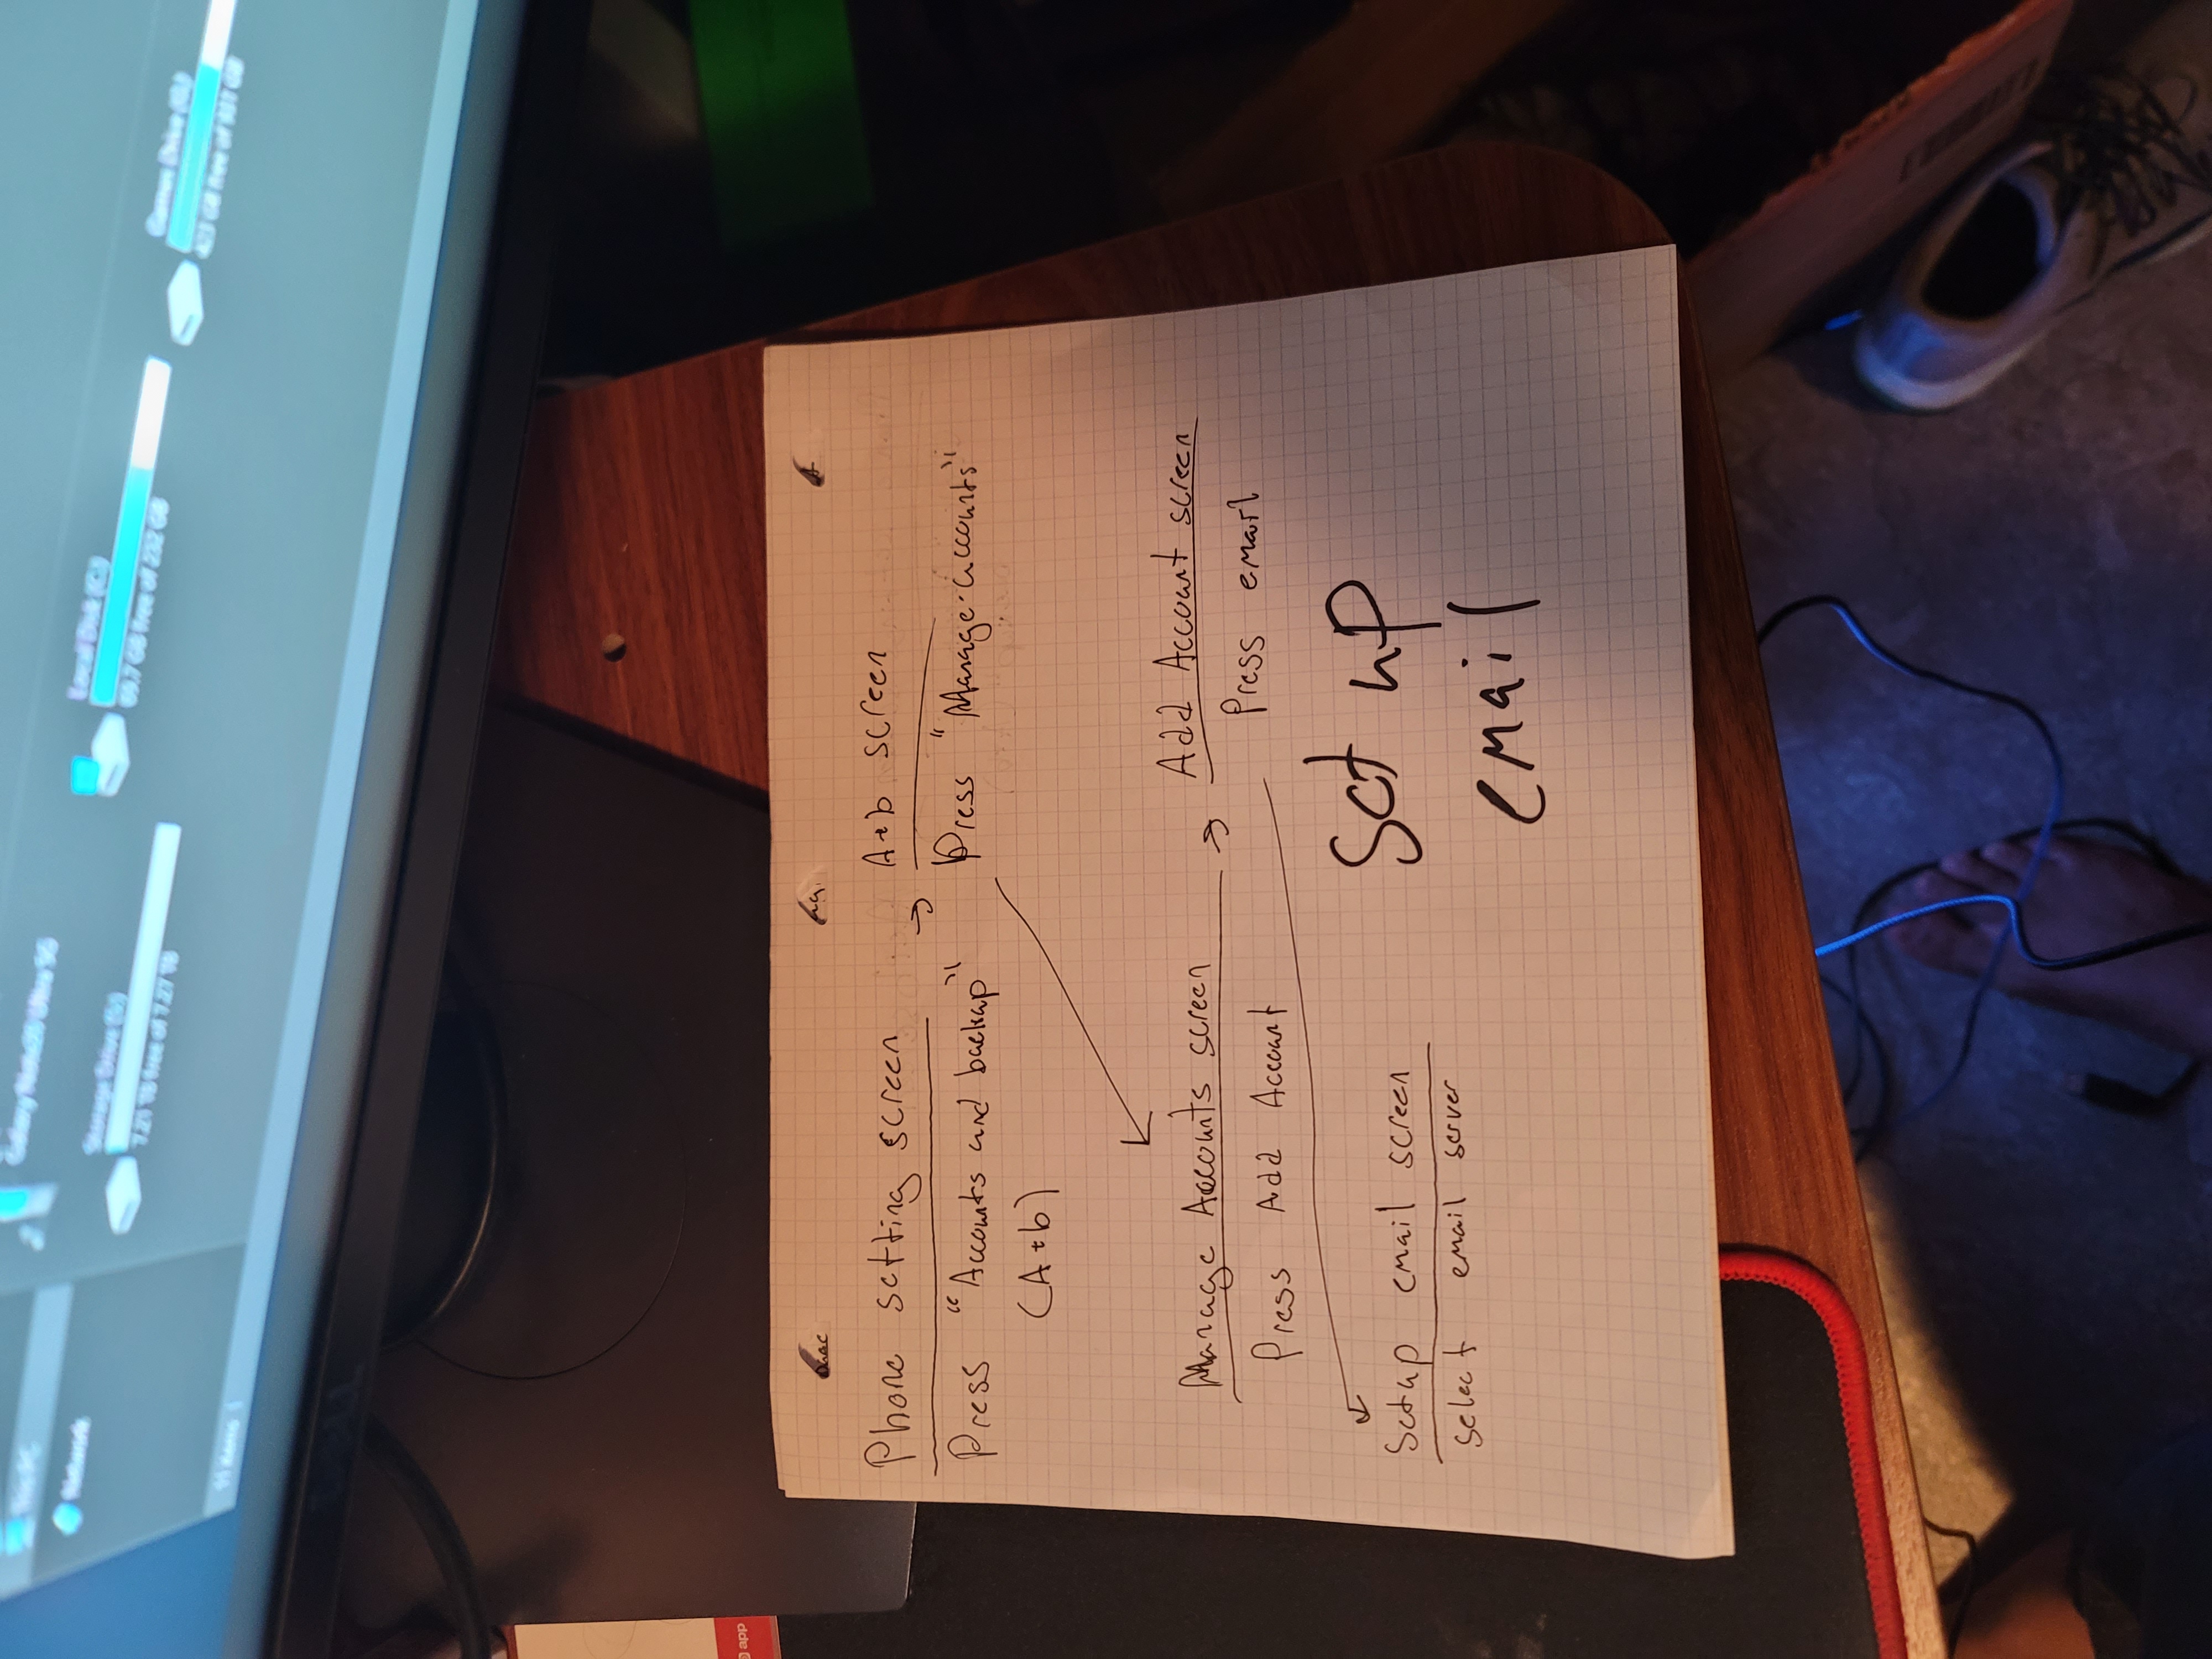 This PC
Network
Galaxy Note20 Ultra 5G
Storage Drive (S:)
7.21 TB free of 7.27 TB
Local Disk (C:)
69.7 GB free of 232 GB
Games Drive (G:)
423 GB free of 931 GB
11 items
DELL
app
Phone setting screen
Press "Accounts and backup"
(A+b)
→ A+b screen
Press "Manage accounts"
Manage Accounts screen
Press Add Account
→ Add Account screen
Press email
Setup email screen
select email server
Set up
email